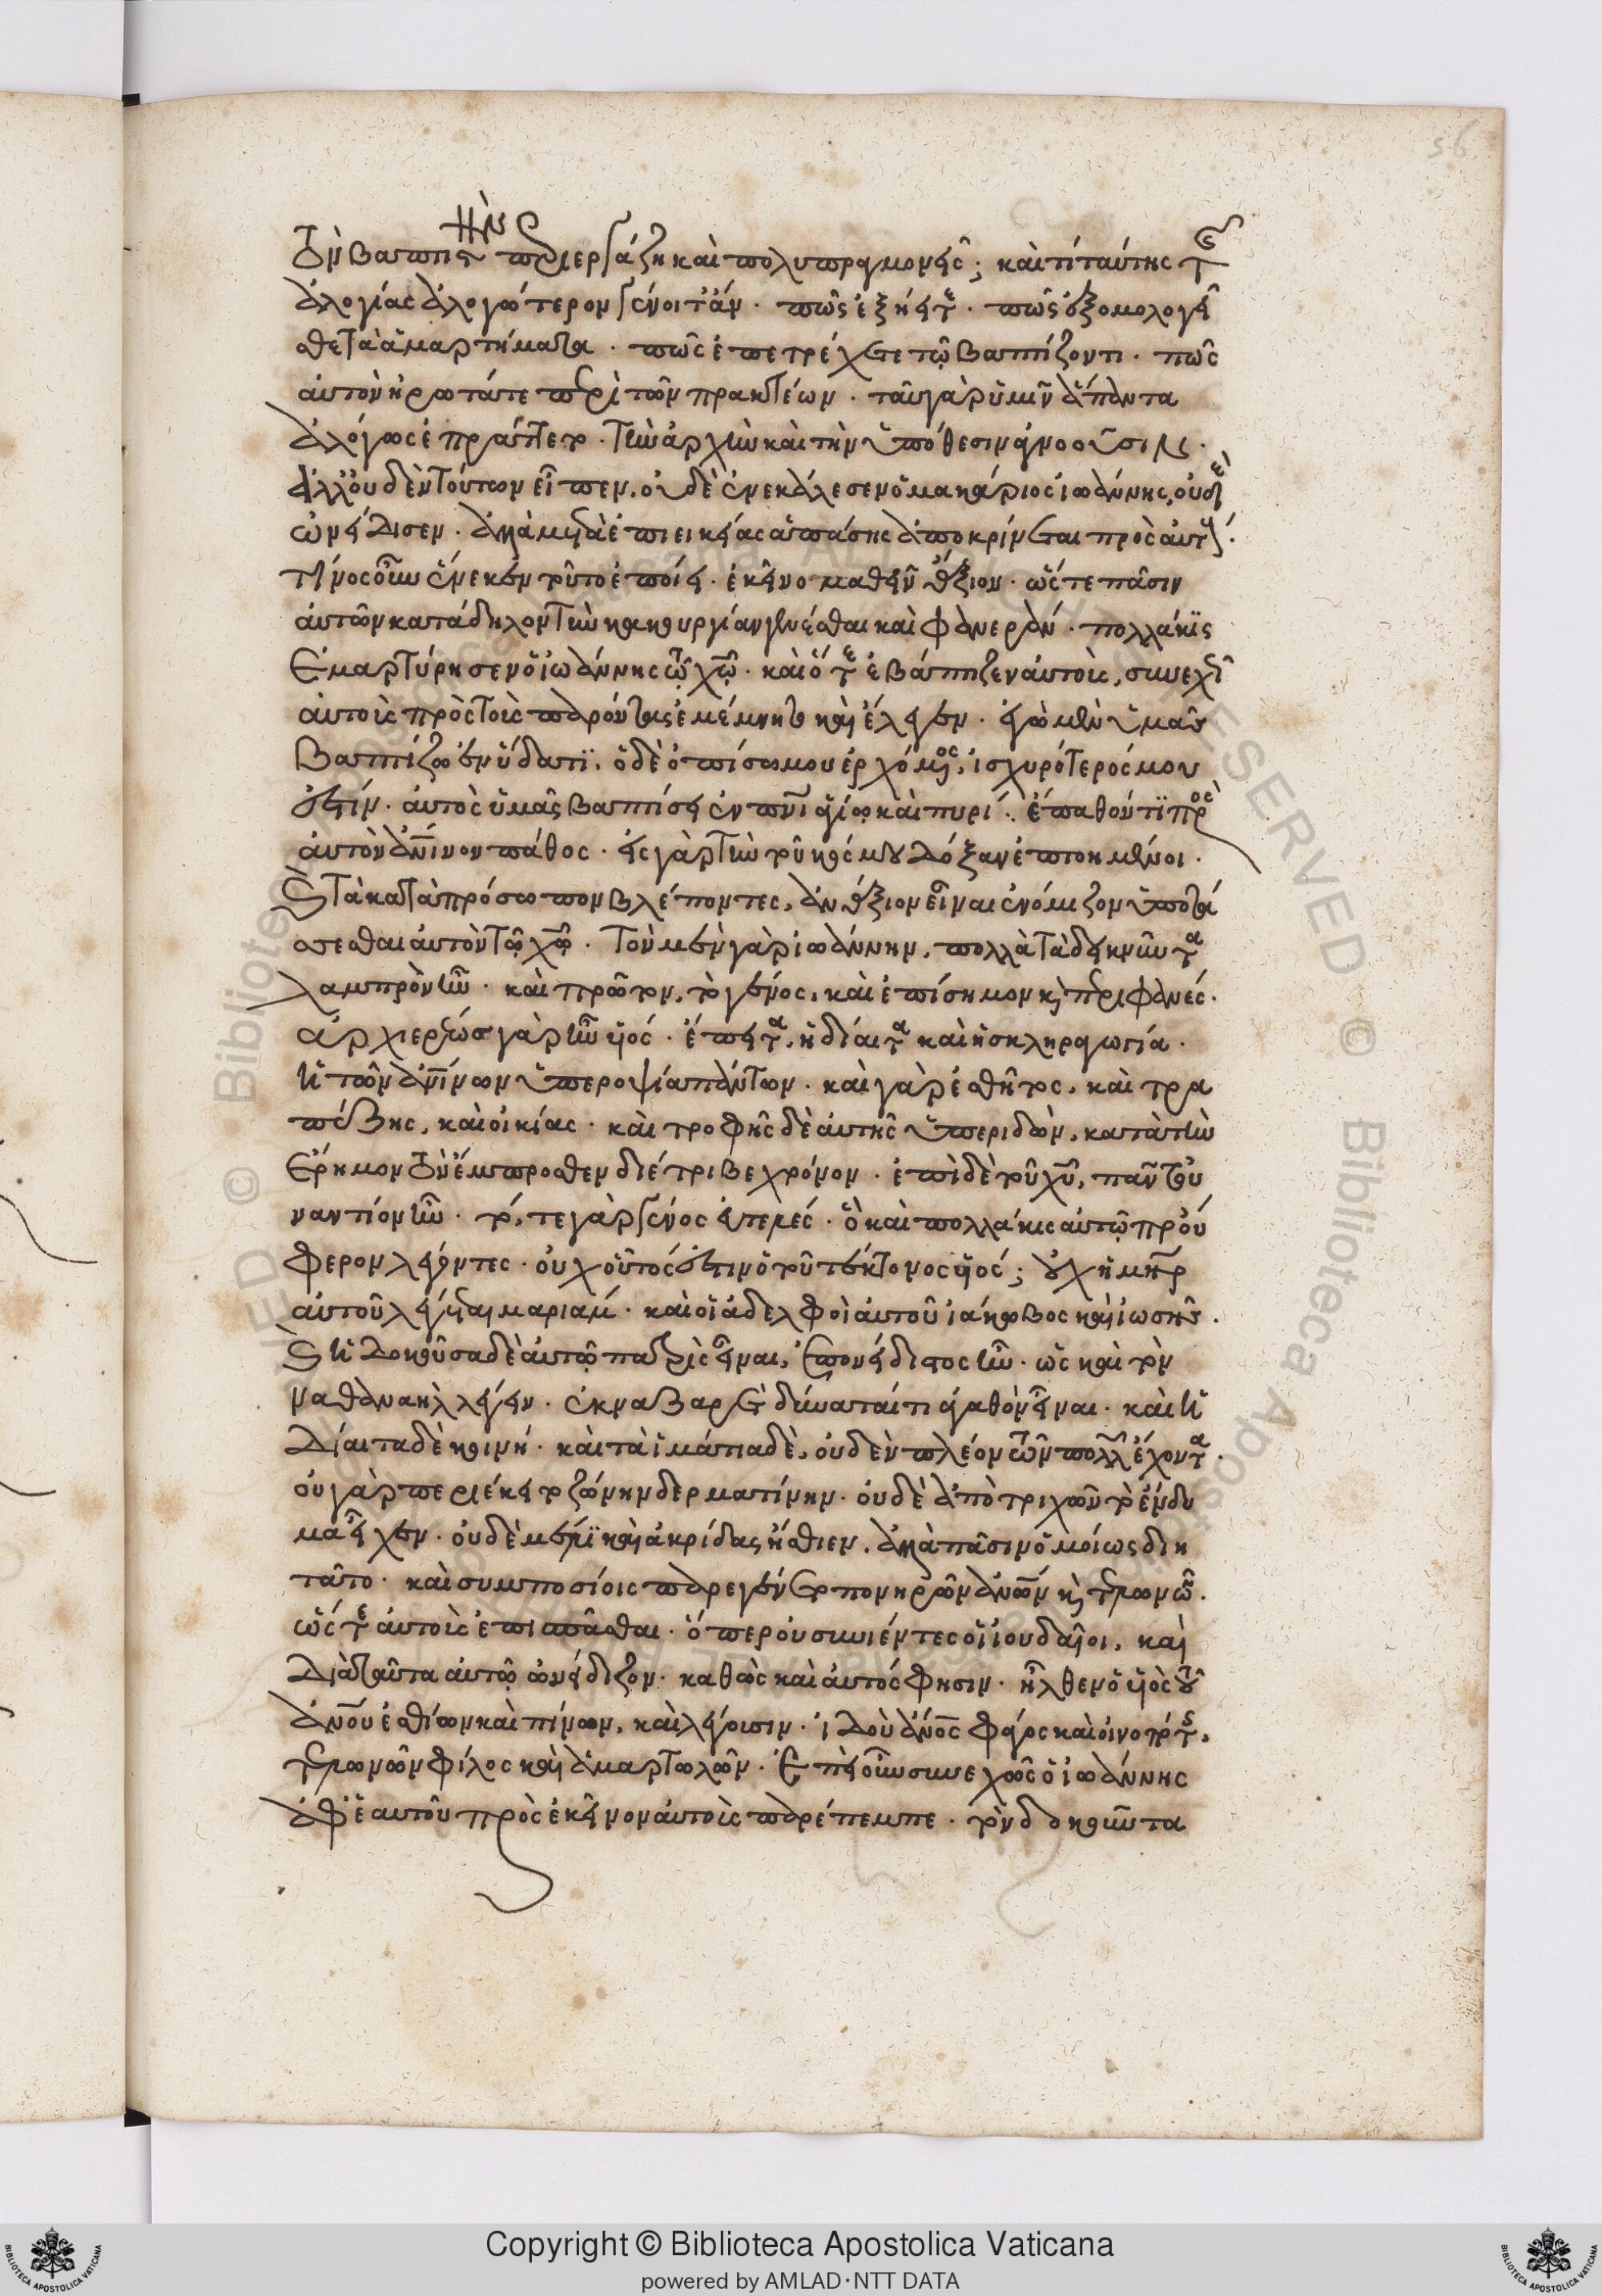 56
τὸν βαπτιστὴν περιεργάζῃ καὶ πολυπραγμονεῖς; καὶ τί ταύτης τῆς
ἀλογίας ἀλογώτερον γένοιτ' ἄν. πῶς ἐξήειτε. πῶς ἐξομολογεῖ
σθε τὰ ἁμαρτήματα. πῶς ἐπετρέχετε τῷ βαπτίζοντι. πῶς
αὐτὸν ἠρωτᾶτε περὶ τῶν πρακτέων. ταῦτα γὰρ ὑμῖν ἅπαντα
ἀλόγως ἐπράττετο. τὴν ἀρχὴν καὶ τὴν ὑπόθεσιν ἀγνοοῦσιν.
ἀλλ' οὐδὲν τούτων εἶπεν. οὐδὲ ἐνεκάλεσεν ὁ μακάριος ἰωάννης, οὐδὲ
ὠνείδισεν. ἀλλὰ μετὰ ἐπιεικείας ἁπάσης ἀποκρίνεται πρὸς αὐτούς.
τίνος οὖν ἕνεκεν τοῦτο ἐποίει. ἐκεῖνο μαθεῖν ἄξιον. ὥστε πᾶσιν
αὐτῶν κατάδηλον τὴν κακουργίαν γενέσθαι καὶ φανεράν. πολλάκις
ἐμαρτύρησεν ὁ ἰωάννης τῷ χῷ. καὶ ὅτε ἐβάπτιζεν αὐτοὺς, συνεχῶς
αὐτοῖς πρὸς τοὺς παρόντας ἐμέμνητο καὶ ἔλεγεν. ἐγὼ μὲν ὑμᾶς
βαπτίζω ἐν ὕδατι. ὁ δὲ ὀπίσω μου ἐρχόμενος, ἰσχυρότερός μου
ἐστίν. αὐτὸς ὑμᾶς βαπτίσει ἐν πνι ἁγίῳ καὶ πυρί. ἔπαθον τι πρὸς
αὐτὸν ἀνινον πάθος. εἰς γὰρ τὴν τοῦ κόσμου δόξαν ἐπτοημένοι.
καὶ τὰ κατὰ πρόσωπον βλέποντες, ἀνάξιον εἶναι ἐνόμιζον ὑποτά
σεσθαι αὐτὸν τῷ χῷ. τὸν μὲν γὰρ ἰωάννην, πολλὰ τὰ δεικνῦντα
λαμπρὸν ἦν. καὶ πρῶτον, τὸ γένος, καὶ ἐπίσημον καὶ περιφανές.
ἀρχιερέως γὰρ ἦν υἱός. ἔπειτα, ἡ δίαιτα καὶ ἡ σκληραγωγία.
ἡ τῶν ἀνινων ὑπεροψία πάντων. καὶ γὰρ ἐσθῆτος, καὶ τρα
πέζης, καὶ οἰκίας. καὶ τροφῆς δὲ αὐτῆς ὑπεριδὼν, κατὰ τὴν
ἔρημον τὸν ἔμπροσθεν διέτριβε χρόνον. ἐπὶ δὲ τοῦ χυ, πᾶν τοὐ
ναντίον ἦν. τό, τε γὰρ γένος εὐτελές. ὃ καὶ πολλάκις αὐτῷ πρού
φερον λέγοντες. οὐχ οὗτός ἐστιν ὁ τοῦ τέκτονος υἱός; οὐχ ἡ μηρ
αὐτοῦ λέγεται μαριάμ. καὶ οἱ ἀδελφοὶ αὐτοῦ ἰάκωβος καὶ ἰωσῆς.
καὶ ἡ δοκοῦσα δὲ αὐτῷ πατρὶς εἶναι, ἐπονείδιστος ἦν. ὡς καὶ τὸν
ναθαναὴλ λέγειν. ἐκ ναζαρὲτ δύναταί τι ἀγαθὸν εἶναι. καὶ ἡ
δίαιτα δὲ κοινή. καὶ τὰ ἱμάτια δὲ, οὐδὲν πλέον τῶν πολλῶν ἔχοντα.
οὐ γὰρ περιέκειτο ζώνην δερματίνην. οὐδὲ ἀπὸ τριχῶν τὸ ἔνδυ
μα εἶχεν. οὐδὲ μέλι καὶ ἀκρίδας ἤσθιεν. ἀλλὰ πᾶσιν ὁμοίως διη
τᾶτο. καὶ συμποσίοις παρεγένετο πονηρῶν ἀνων καὶ τελωνῶν.
ὥστε αὐτοὺς ἐπισπᾶσθαι. ὅπερ οὐ συνιέντες οἱ ἰουδαῖοι, καὶ
διὰ ταῦτα αὐτῷ ὠνείδιζον. καθὼς καὶ αὐτός φησιν. ἦλθεν ὁ υἱὸς τοῦ
ἀνου ἐσθίων καὶ πίνων, καὶ λέγουσιν. ἰδοὺ ἀνος φάγος καὶ οἰνοπότης,
τελωνῶν φίλος καὶ ἁμαρτωλῶν. ἐπεὶ οὖν συνεχῶς ὁ ἰωάννης
ἀφ' ἑαυτοῦ πρὸς ἐκεῖνον αὐτοὺς παρέπεμπε. τὸν δοκοῦντα
Copyright © Biblioteca Apostolica Vaticana
powered by AMLAD·NTT DATA